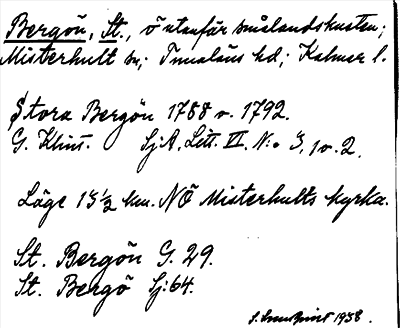 Bergön, St., ö utanför smålandskusten;
Misterhult sn; Tunaläns hd; Kalmar l.
Stora Bergön 1788 o. 1792.
G. Klint. SjA, Litt. VI, N:o 3, 1 o. 2.
Läge 13½ km. NÖ Misterhults kyrka.
St. Bergön G. 29.
St. Bergö Sj: 64.
1938.